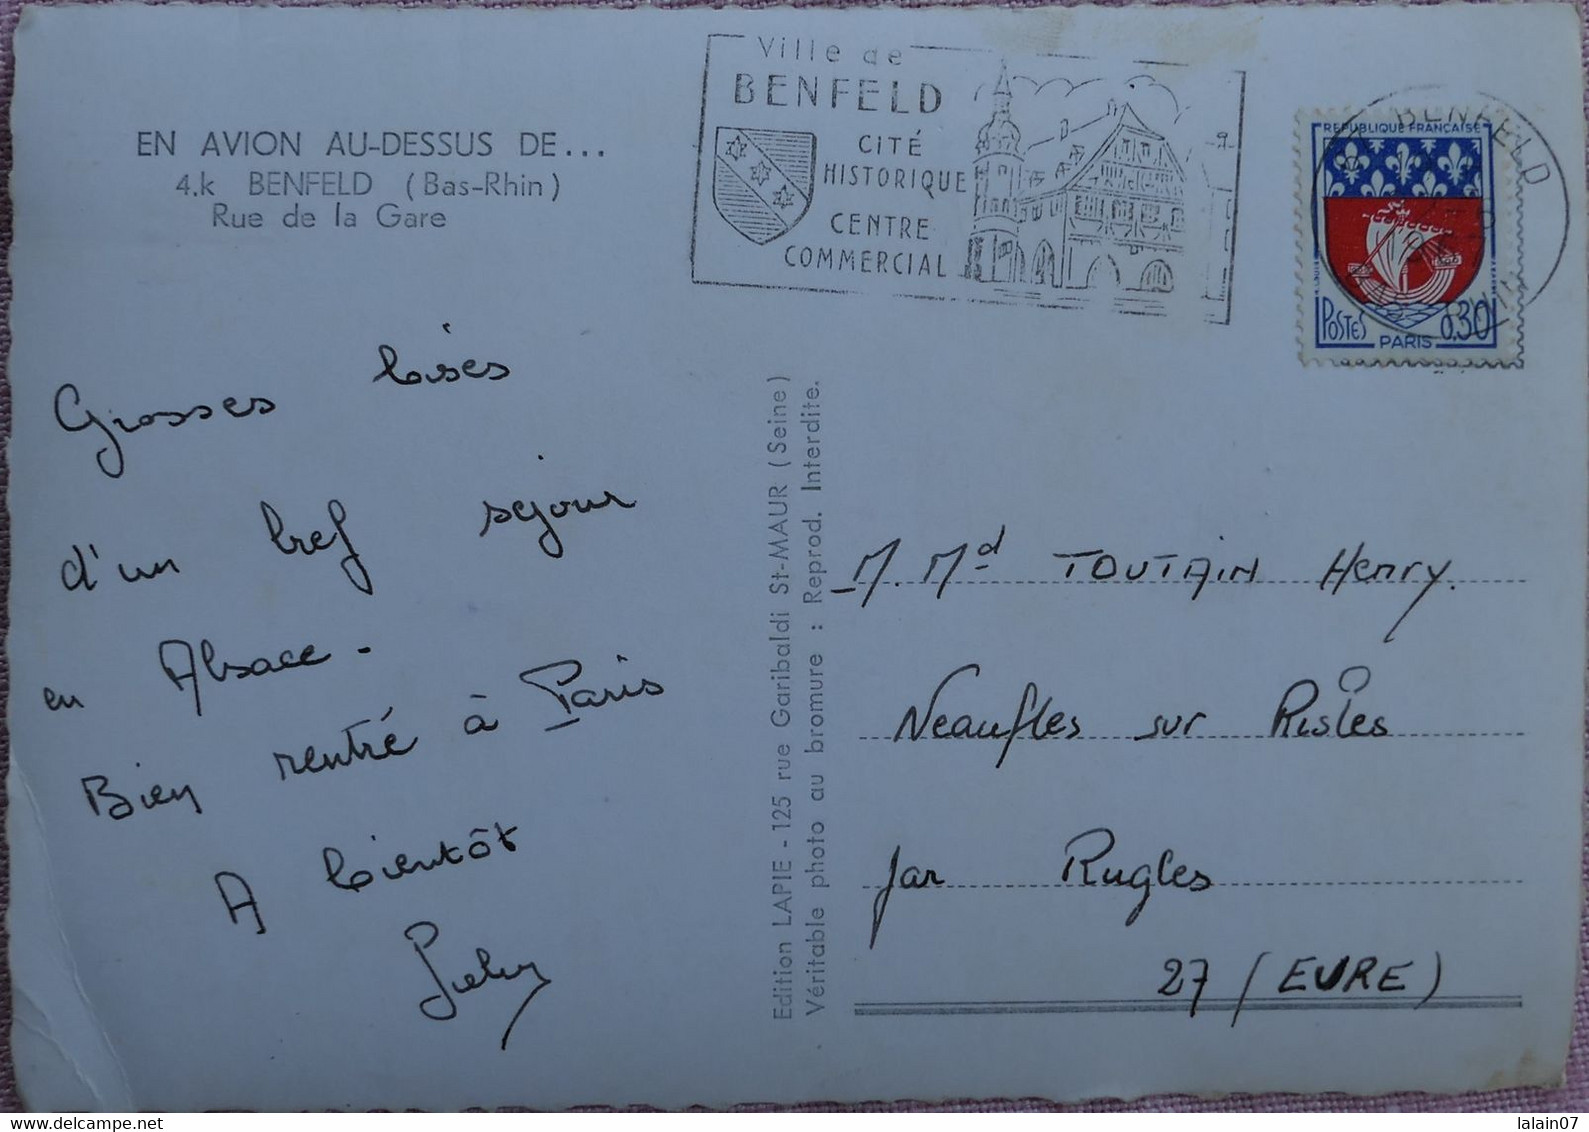 EN AVION AU-DESSUS DE...
4.k BENFELD (Bas-Rhin)
Rue de la Gare
Ville de
BENFELD
CITÉ
HISTORIQUE
CENTRE
COMMERCIAL
BENFELD
REPUBLIQUE FRANÇAISE
POSTES
0,30
PARIS
Grosses bises
d'un bref séjour
en Alsace.
Bien rentré à Paris
A bientôt
Edition LAPIE - 125 rue Garibaldi St-MAUR (Seine)
Véritable photo au bromure : Reprod. Interdite.
M. Md TOUTAIN Henry.
Neaufles sur Risles
par Rugles
27 (EURE)
lalain07